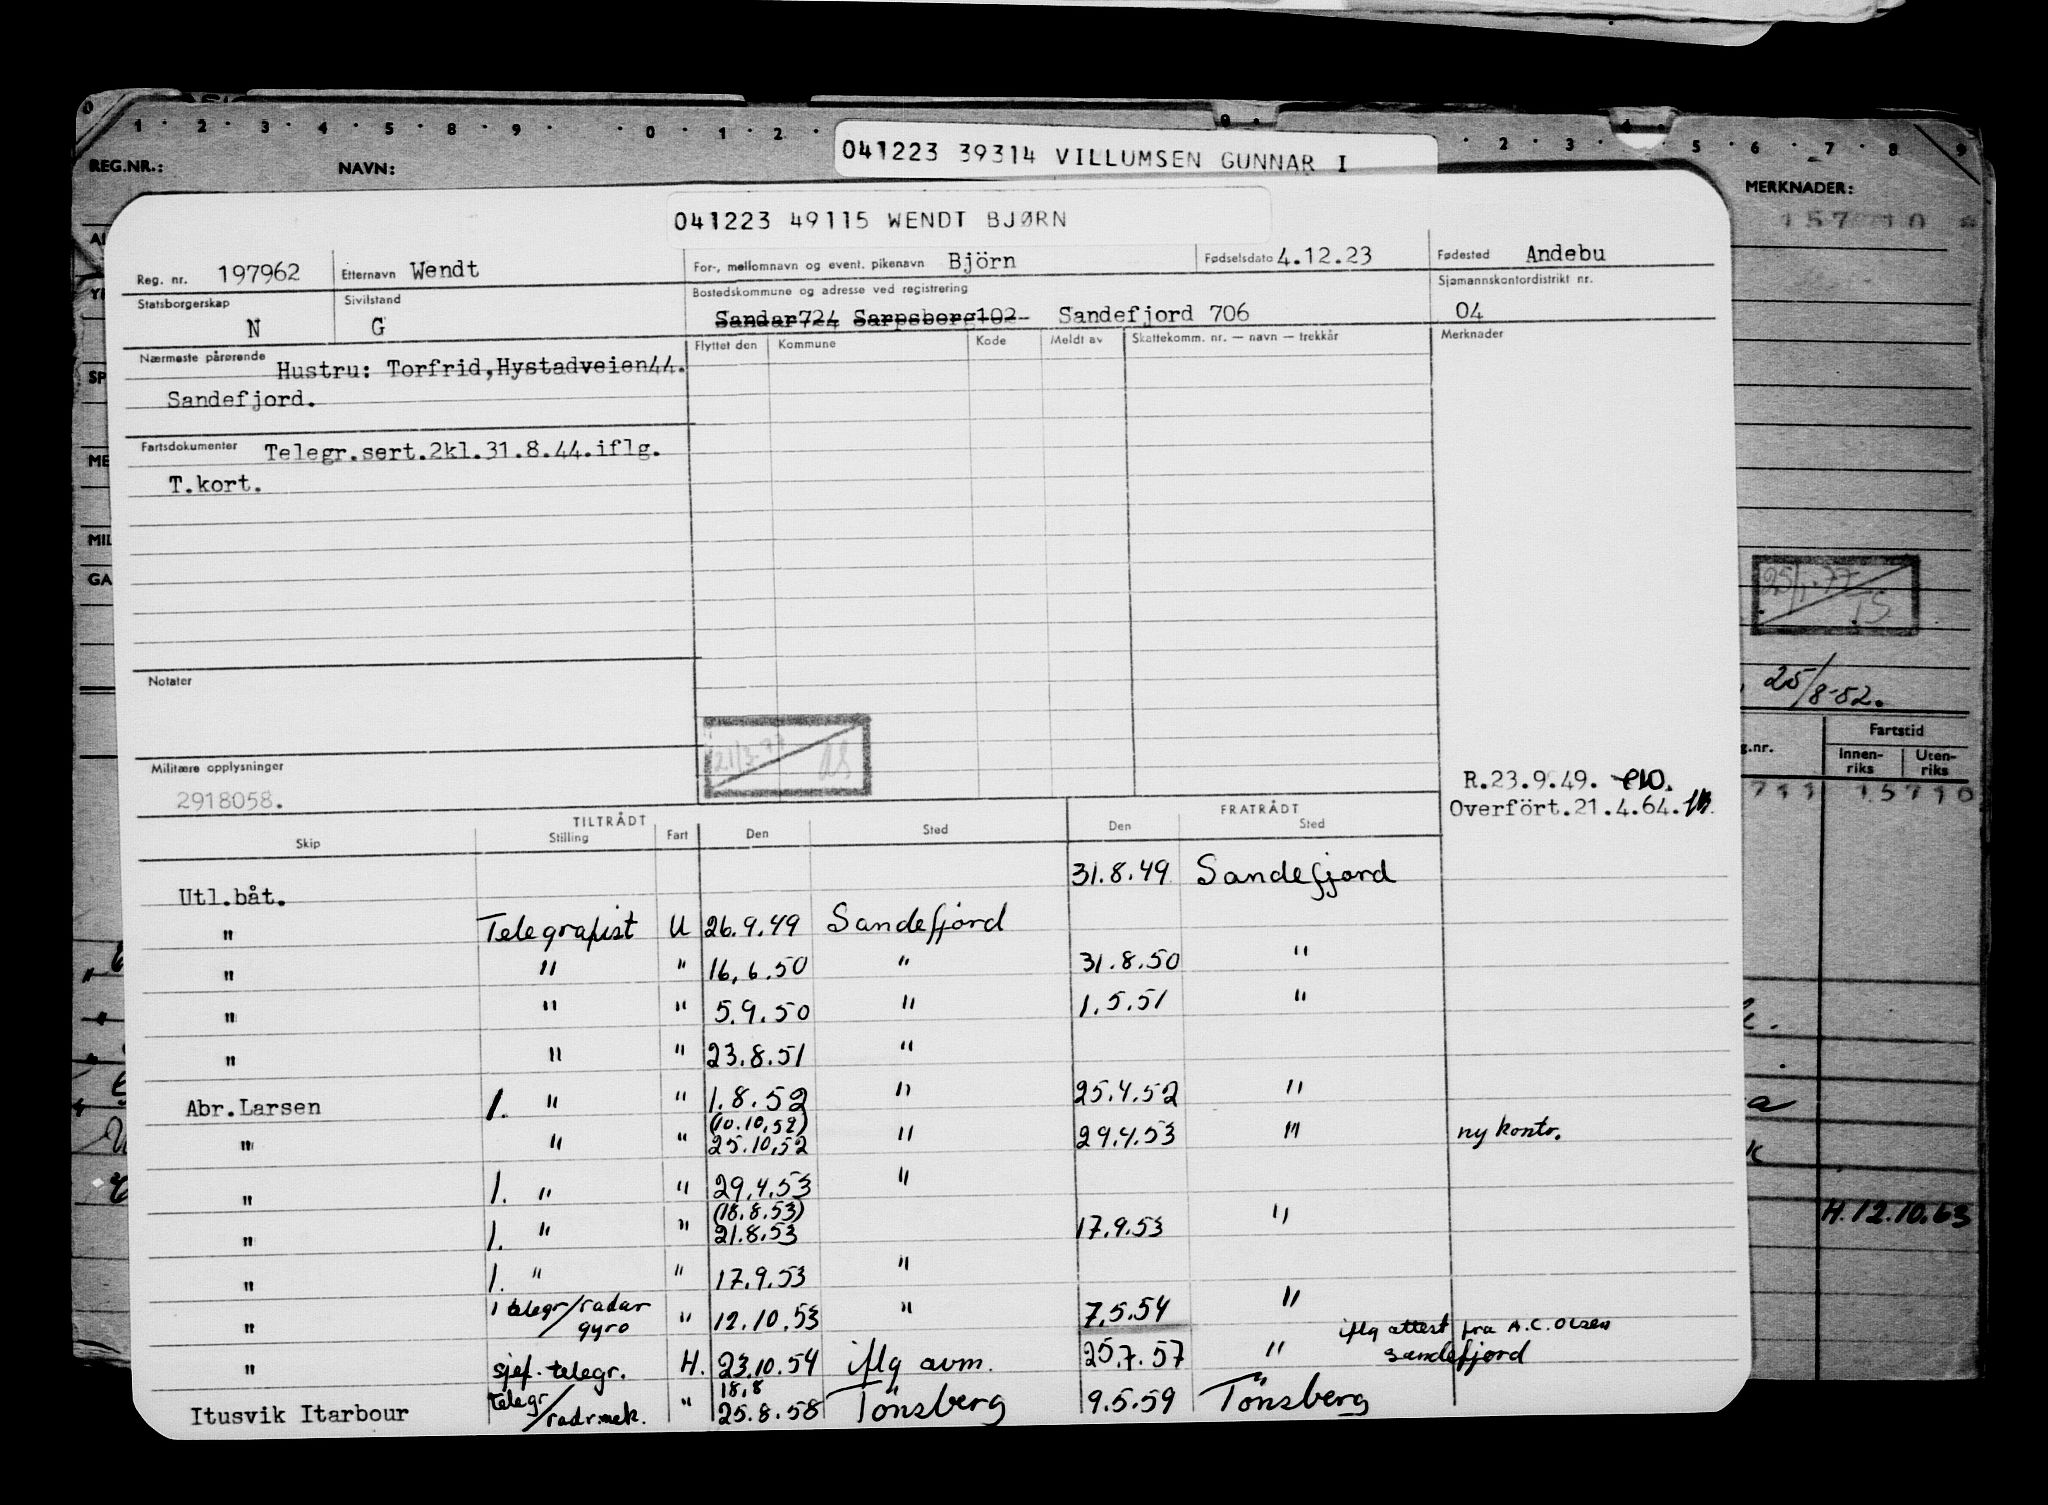 0 1 · 2 · 3 · 4 · 5 · 8 · 9 · · 0 · 1 · 2 · 0 · 2 · 3 · 4 · 5 · 6 · 7 · 8 · 9
REG.NR.: NAVN: 041223 39314 VILLUMSEN GUNNAR I MERKNADER:
157710
041223 49115 WENDT BJØRN
Reg. nr. 197962 Etternavn Wendt For-, mellomnavn og event. pikenavn Björn Fødselsdato 4.12.23 Fødested Andebu
Statsborgerskap N Sivilstand G Bostedskommune og adresse ved registrering Sandar724 Sarpsborg102 Sandefjord 706 Sjømannskontordistrikt nr. 04
Nærmeste pårørende Flyttet den Kommune Kode Meldt av Skattekomm. nr. — navn — trekkår Merknader
Hustru: Torfrid,Hystadveien44.
Sandefjord.
Fartsdokumenter Telegr.sert.2kl.31.8.44.iflg.
T.kort.
MIL
GA
25/1.77
Notater
25/8-52.
Militære opplysninger
2918058.
R.23.9.49.
Overfört.21.4.64.
Fartstid
g.nr. Innenriks Utenriks
711 15710
TILTRÅDT FRATRÅDT
Skip Stilling Fart Den Sted Den Sted
Utl.båt. 31.8.49 Sandefjord
" Telegrafist U 26.9.49 Sandefjord
" " " 16.6.50 " 31.8.50 "
" " " 5.9.50 " 1.5.51 "
" " " 23.8.51 "
Abr.Larsen 1. " " 1.8.52 " 25.4.52 "
(10.10.52)
" " " 25.10.52 " 29.4.53 " ny kontr.
" 1. " " 29.4.53 "
(18.8.53)
" 1. " " 21.8.53 17.9.53 "
H.12.10.63
" 1. " " 17.9.53 "
" 1 telegr/radar gyro " 12.10.53 " 7.5.54 "
iflg attest fra A.C.Olsen
Sandefjord
" sjef. telegr. H. 23.10.54 iflg avm. 25.7.57 "
18.8
Itusvik Itarbour Telegr/radr.mek. " 25.8.58 Tönsberg 9.5.59 Tönsberg